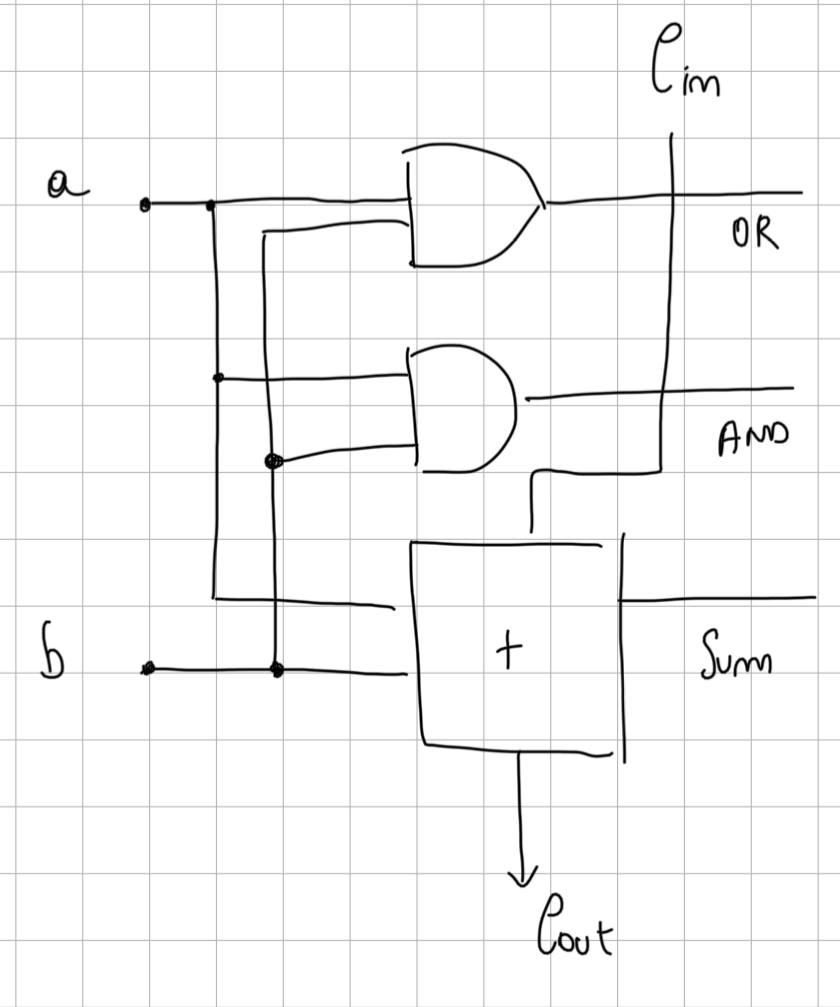 Cin
a
OR
AND
+
b
Sum
Cout